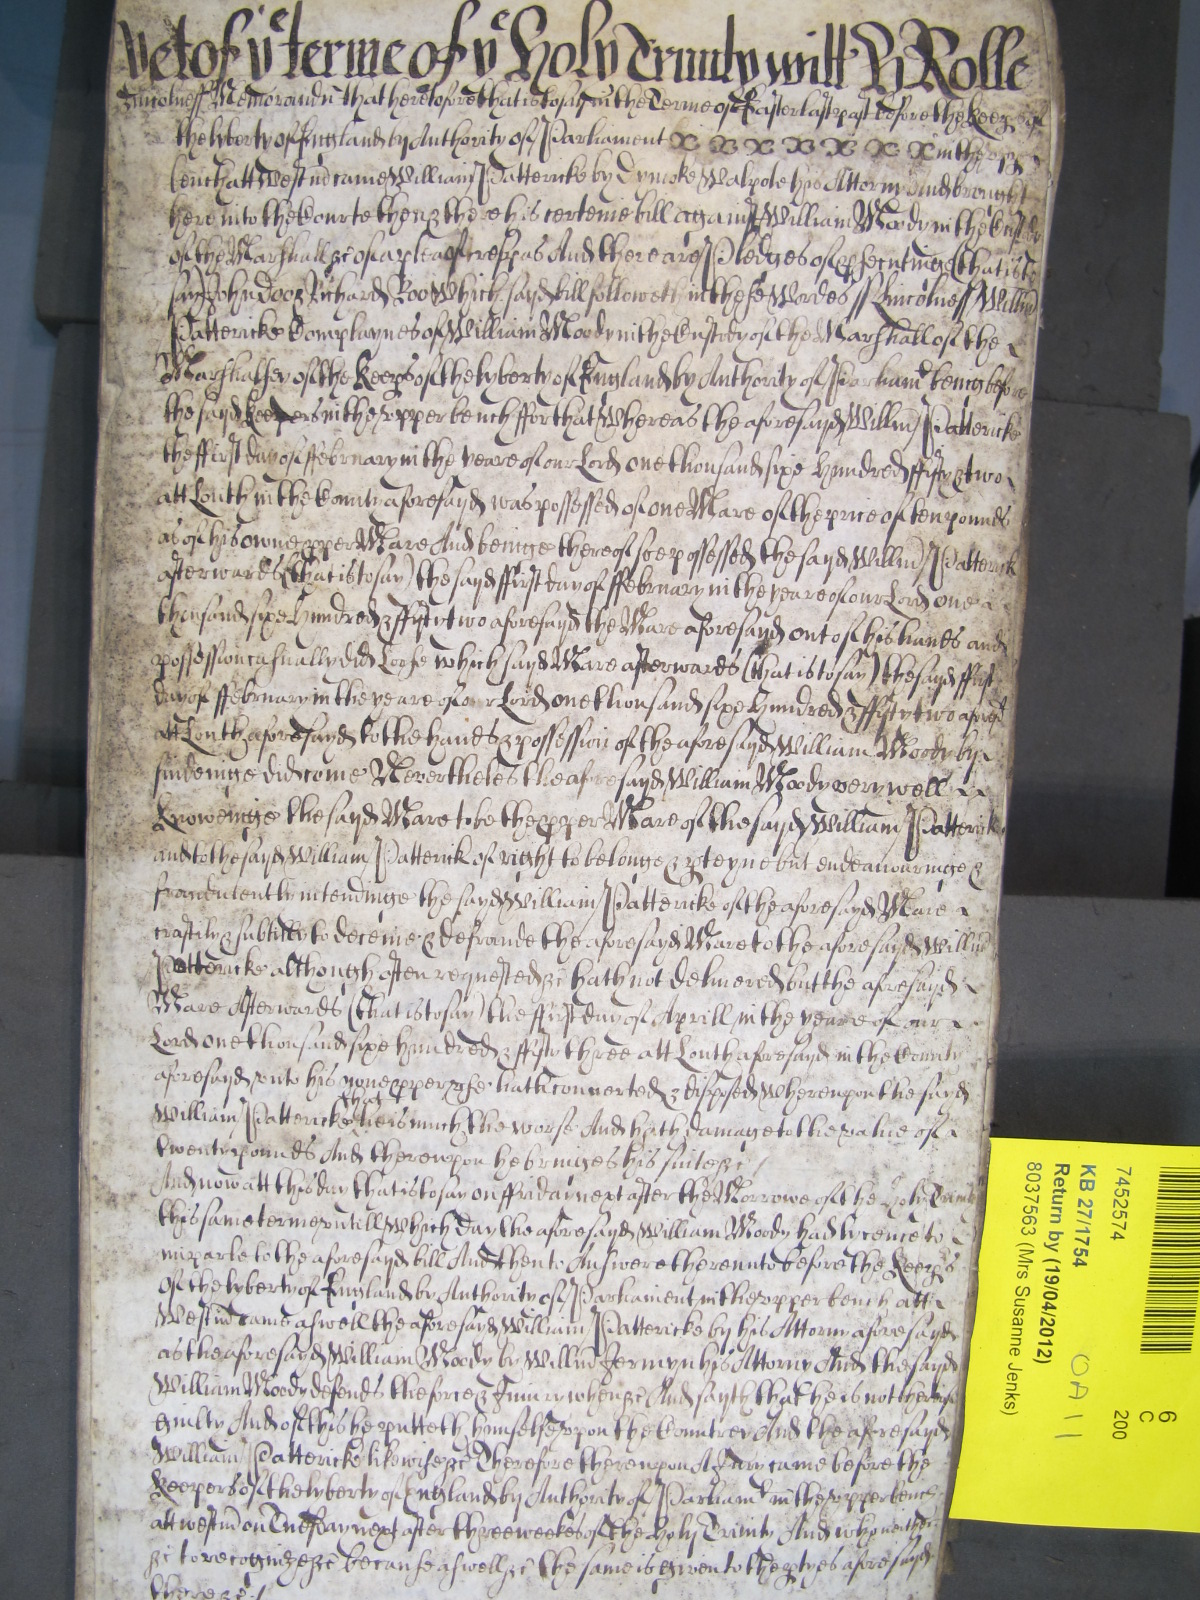 Yet of ye terme of ye Holy Trinity witt R Rolle
Lincolness Memorandu that heretofore that is to say in the Terme of Easter last past before the Keeps of
the lyberty of England by Authority of Parliament in the upper
bench att Westm came William Pattericke by Dymoke Walpole his Attorny And brought
here into the Courte then & there his certeine bill against William Moody in the Custody
of the Marshall &c of a plea of trespas And there are Pledges of psecutinge (that is to
say) John Doo & Richard Roo Which sayd bill followeth in these Wordes ss Lincolness Willm
Pattericke Complaynes of William Moody in the Custody of the Marshall of the
Marshalsey of the Keeps of the lyberty of England by Authority of Parliamt being before
the sayd Keepers in the upper bench ffor that Whereas the aforesayd Willm Pattericke
the ffirst day of ffebruary in the yeare of our Lord one thousand sixe Hundred ffifty & two
att Louth in the County aforesayd was possessed of one Mare of the price of ten pounds
as of his owne pper Mare And beinge thereof soe possessed the sayd Willm Patterick
afterwards (that is to say) the sayd ffirst day of ffebruary in the yeare of our Lord one
thousand sixe Hundred & ffifty two aforesayd the Mare aforesayd out of his hands and
possession casually did Loose which sayd Mare afterwards (that is to say) the sayd ffirst
day of ffebruary in the yeare of our Lord one thousand sixe Hundred & ffifty two aforesd
att Louth aforesayd to the hands & possession of the aforesayd William Moody by
findeinge did come Neverthelles the aforesayd William Moody very well
knoweinge the sayd Mare to be the pper Mare of the sayd William Patterick
and to the sayd William Patterick of right to belonge & pteyne but endeavouringe &
fraudulently intendinge the sayd William Pattericke of the aforesayd Mare
craftily & subtilly to deceive & defraude the aforesayd Mare to the aforesayd Willm
Pattericke although often requested &c hath not delivered but the aforesayd
Mare Afterwards (that is to say) the ffirst day of Aprill in the yeare of our
Lord one thousand sixe hundred & ffifty three att Louth aforesayd in the County
aforesayd unto his owne pper use hath converted & disposed Whereupon the sayd
William Pattericke sayth that he is much the worse And hath damage to the value of
twenty pounds And thereupon he bringes his suite &c
And now att this day that is to say on ffriday next after the Morrowe of the holy Trinity
this same terme untill Which day the aforesayd William Moody had lycence to
imparle to the aforesayd bill And then to Answere thereunto before the Keeps
of the lyberty of England by Authority of Parliament in the upper bench att
Westm came aswell the aforesayd William Pattericke by his Attorny aforesayd
as the aforesayd William Moody by Willm Jermyn his Attorny And the sayd
William Moody defends the force & Iniury when &c And sayth that he is not thereof
guilty And of this he putteth himselfe upon the Countrey And the aforesayd
William Pattericke likewise &c Therefore thereupon A Jury came before the
Keepers of the lyberty of England by Authority of Parliamt in the upper bench
att westm on Tuesday next after three weekes of the Holy Trinity And who neither
&c to recognize &c because aswell &c the same is given to the ptyes aforesayd
there &c
6
C
200
7452574
KB 27/1754
Return by (19/04/2012)
8037563 (Mrs Susanne Jenks)